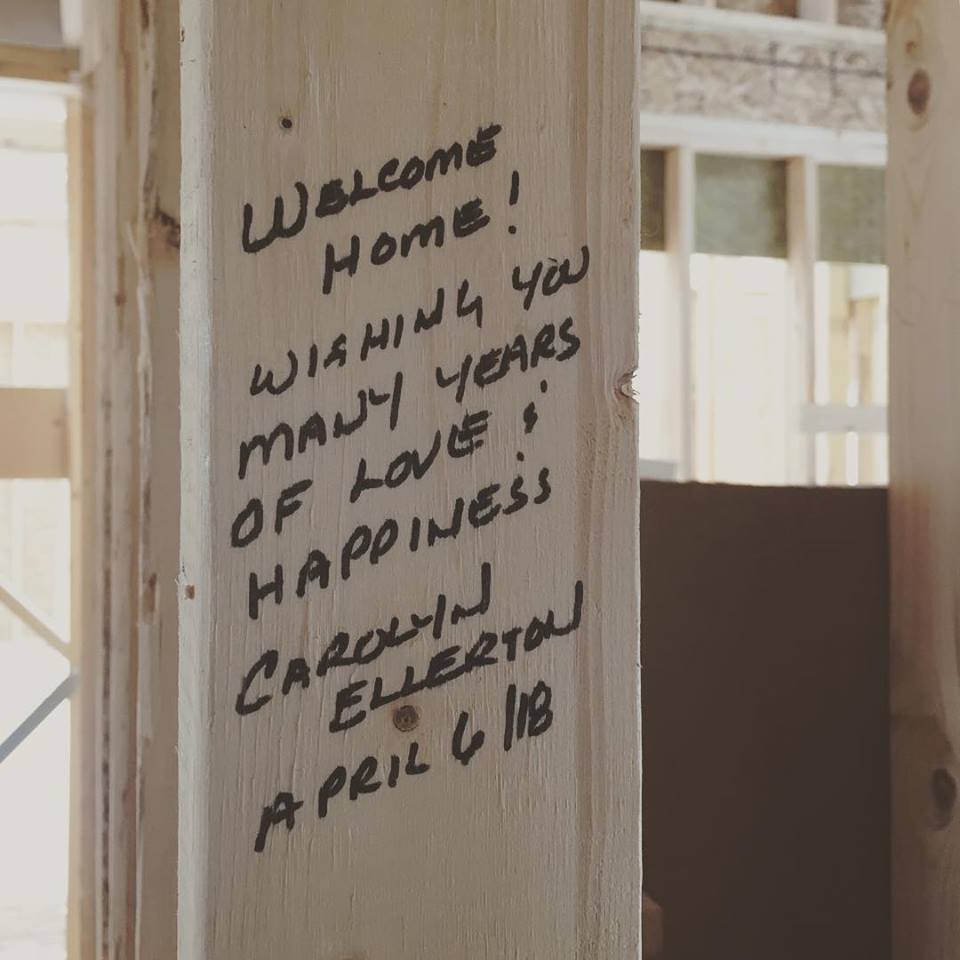 WELCOME
HOME!
WISHING YOU
MANY YEARS
OF LOVE &
HAPPINESS
CAROLYN
ELLERTON
APRIL 6/18